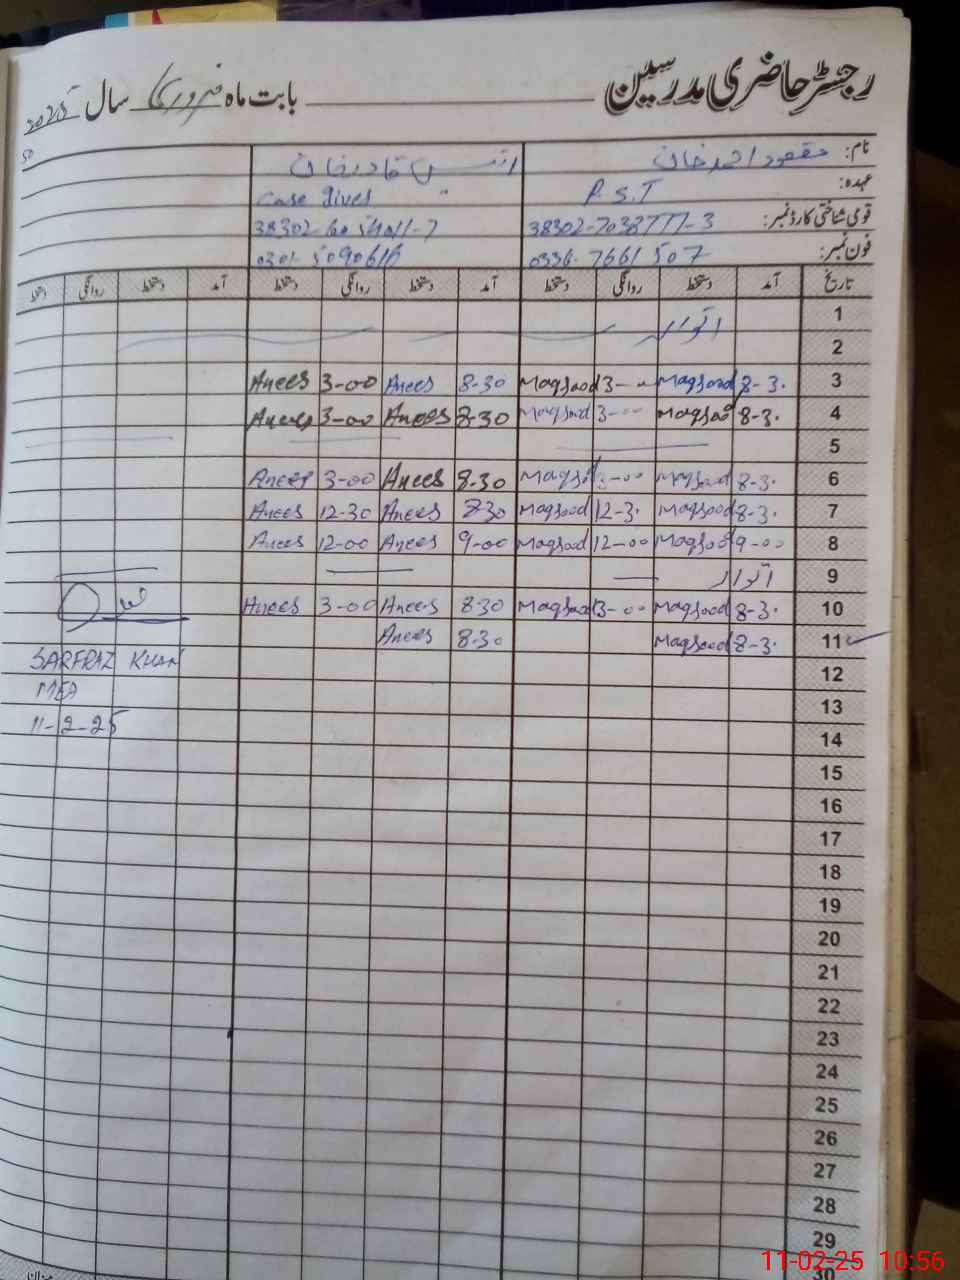 رجسٹر حاضری مدرسین بابت ماہ فروری سال 2025
نام: مقصود احمد خان انیس قادر خان
عہدہ: P.S.T
قومی شناختی کارڈ نمبر: 38302-7038777-3
فون نمبر: 0336-7661507
تاریخ آمد دستخط روانگی دستخط آمد دستخط روانگی دستخط آمد دستخط روانگی دستخط
1 اتوار
2
3 8-3. Maqsood 3-00 Maqsood 8-30 Anees 3-00 Anees
4 8-3. Maqsood 3-00 Maqsood 8-30 Anees 3-00 Anees
5
6 8-3. Maqsood 3-00 Maqsood 8-30 Anees 3-00 Anees
7 8-3. Maqsood 12-3. Maqsood 8-30 Anees 12-30 Anees
8 9-00 Maqsood 12-00 Maqsood 9-00 Anees 12-00 Anees
9 اتوار
10 8-3. Maqsood 3-00 Maqsood 8-30 Anees 3-00 Anees
11 8-3. Maqsood 8-30 Anees
12 SARFRAZ KHAN
13 MEA
14 11-2-25
15
16
17
18
19
20
21
22
23
24
25
26
27
28
29
30
11-02-25 10:56